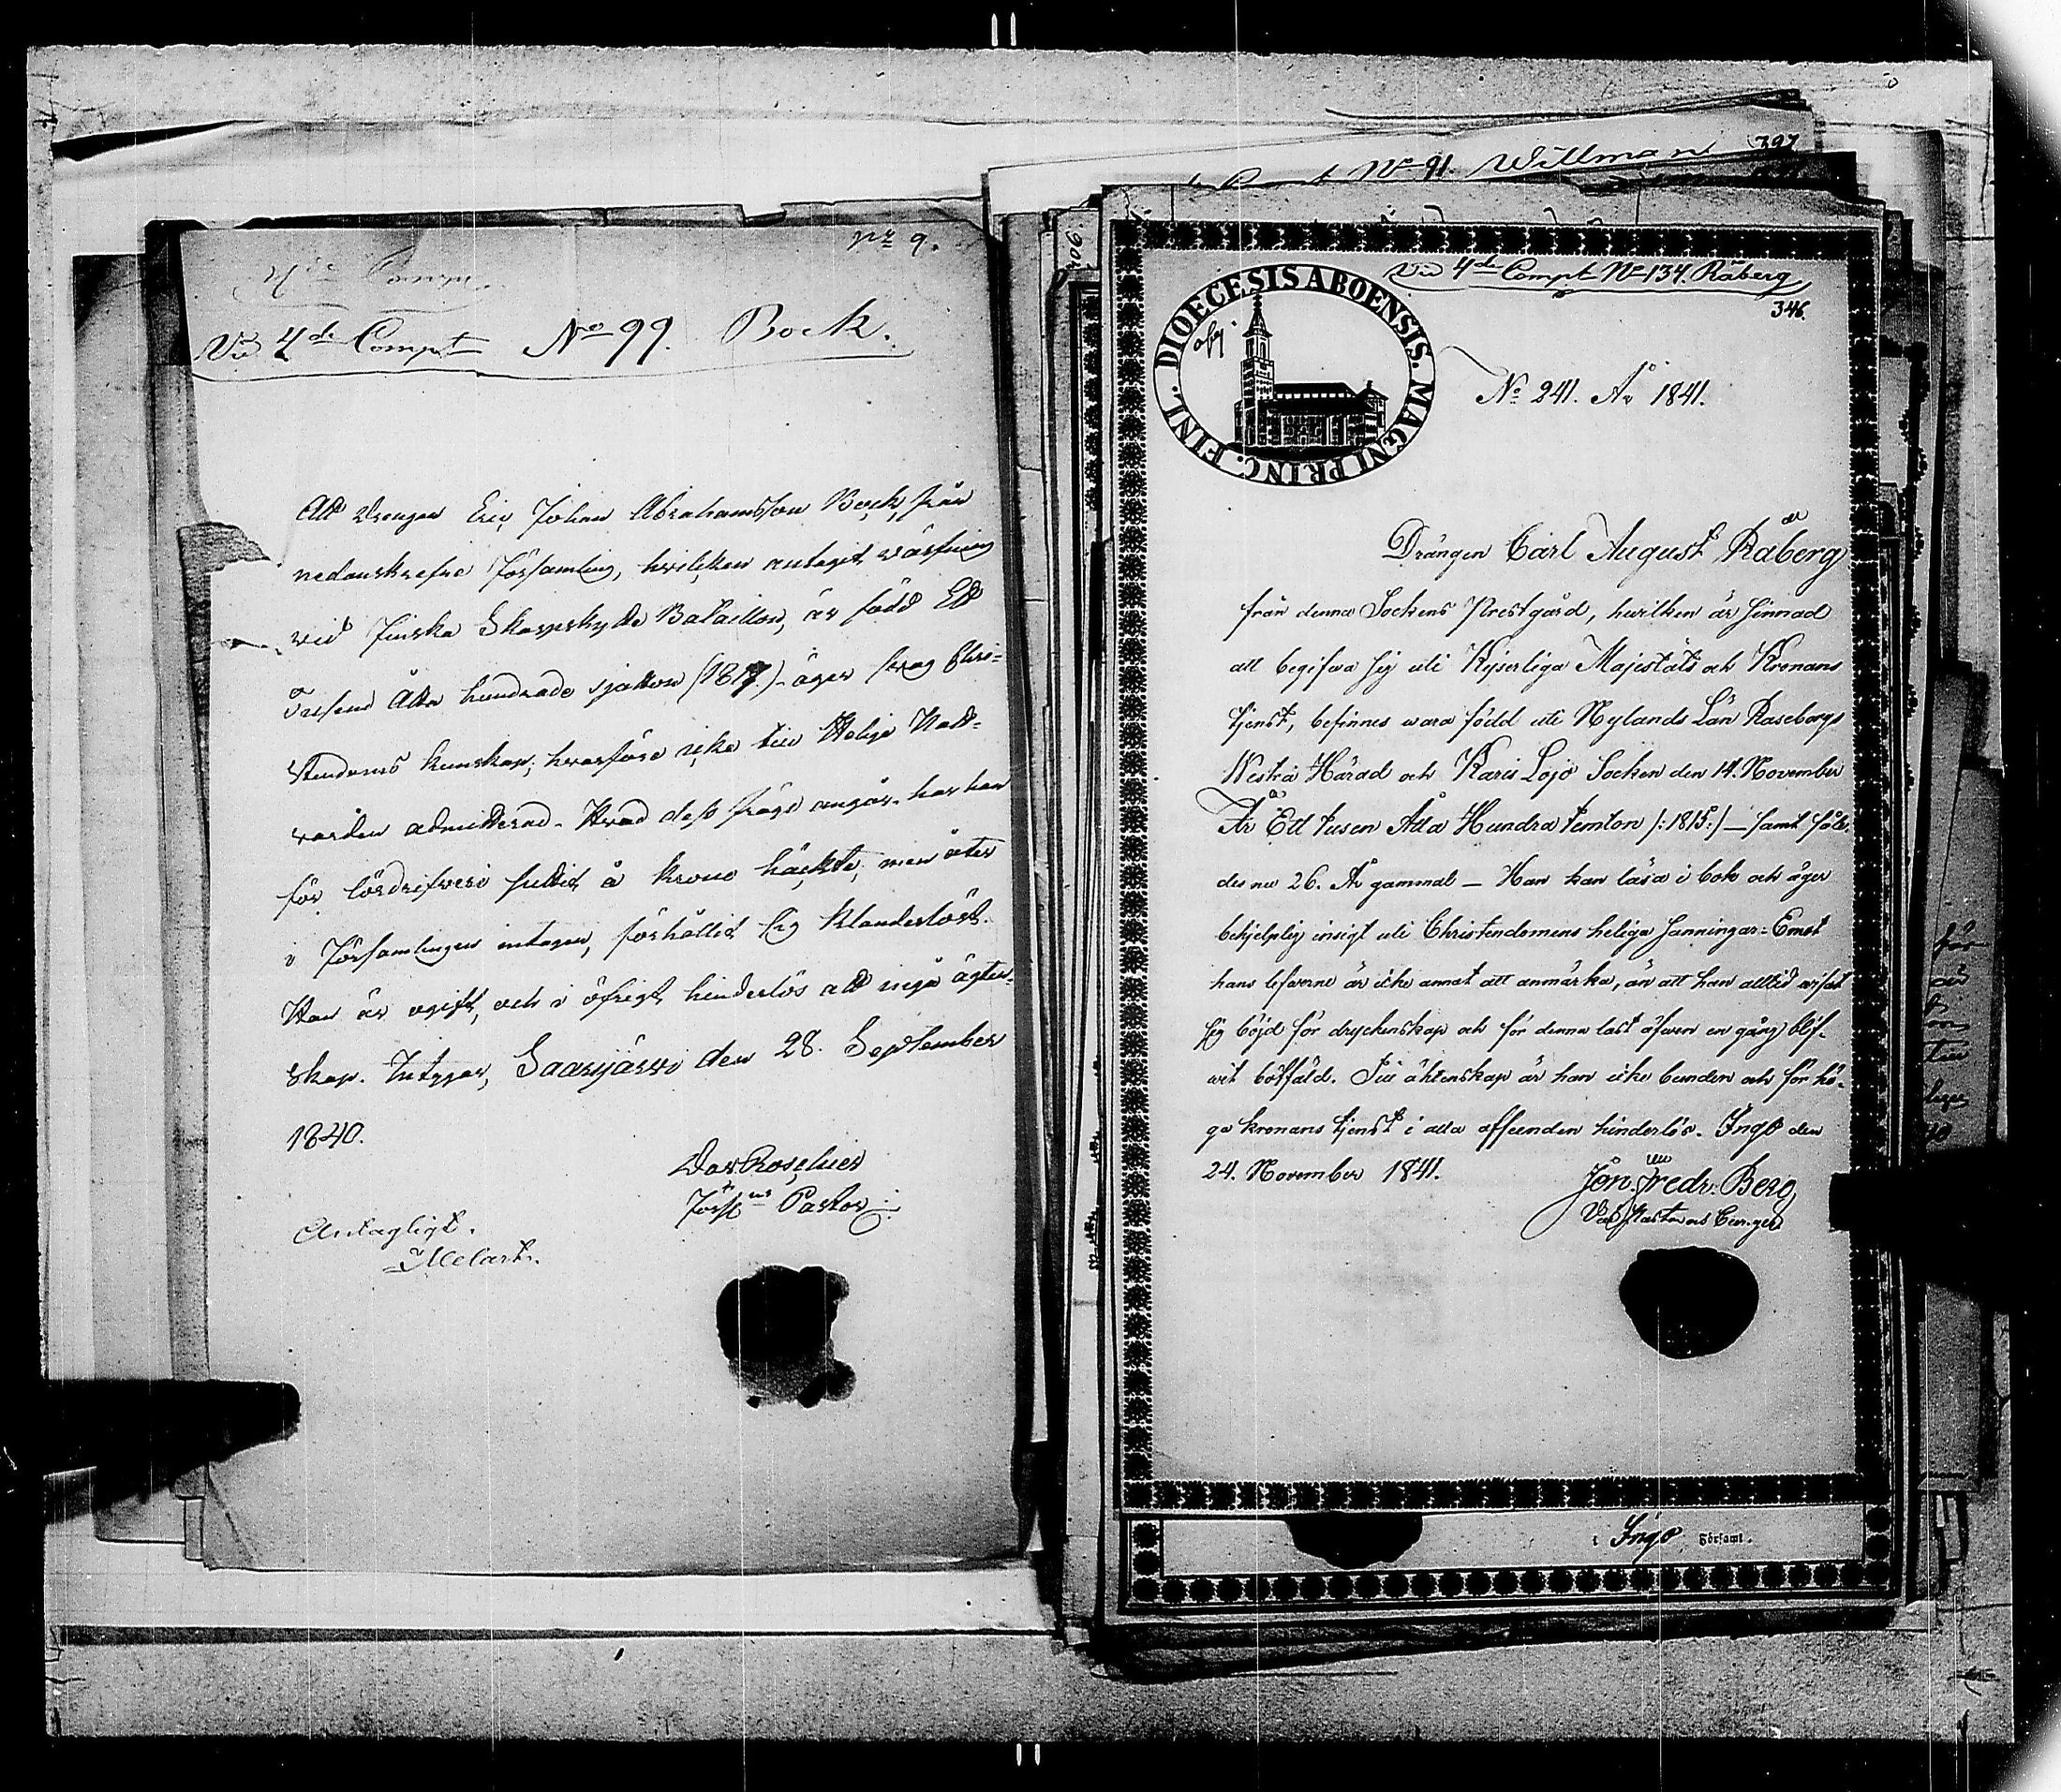 No 9.
4de Comp.
Vid 4de Compt No 99. Bock.
Att Drengen Eric Johan Abrahamsson Bock, från
nedanskrefne Församling, hvilcken antagit värfning
vid Finska Skarpskytte Bataillon, är född Ett
Tusend Åtta hundrade sjutton (1817.) - äger svag Chri-
stendoms kunskap; hvarföre icke till Helige Natt-
varden admitterad. Hvad dess frägd angår, har han
för lösdrifveri suttit å krono häckte; men åter
i Församlingen intagen, förhållit sig klanderlöst.
Han är ogift, och i öfrigt hinderlös att ingå ägten-
skap. Intygar, Saarijärvi den 28. September
1840.
Dav Roschier
Förs:ns Pastor
Antagligt.
Melart.
No 91. Willman 397
406.
Vid 4de Compt No 134. Råberg
346.
DIOECESIS ABOENSIS. MAGNI PRINC. FINL.
afg
No 241. År 1841.
Drängen Carl August Råberg
från denna Sockens Prestgård, hwilken är sinnad
att begifwa sig uti Kejserliga Majestäts och Kronans
tjenst, befinnes wara född uti Nylands Län Raseborgs
Westra Härad och Karis Lojo Socken den 14. November
År Ett tusen Åtta Hundra femton /:1815:/ — samt såle-
des nu 26. År gammal — Han kan läsa i bok och äger
behjelplig insigt uti Christendomens heliga sanningar - Emot
hans lefwerne är icke annat att anmärka, än att han alltid wisat
sig böjd för dryckenskap och för denna last äfwen en gång blif-
wit bötfäld. Till äktenskap är han icke bunden och för hö-
ga kronans tjenst i alla afseenden hinderlös. Ingo den
24. November 1841.
Jon. Fredr. Berg
i Ingo Församl.